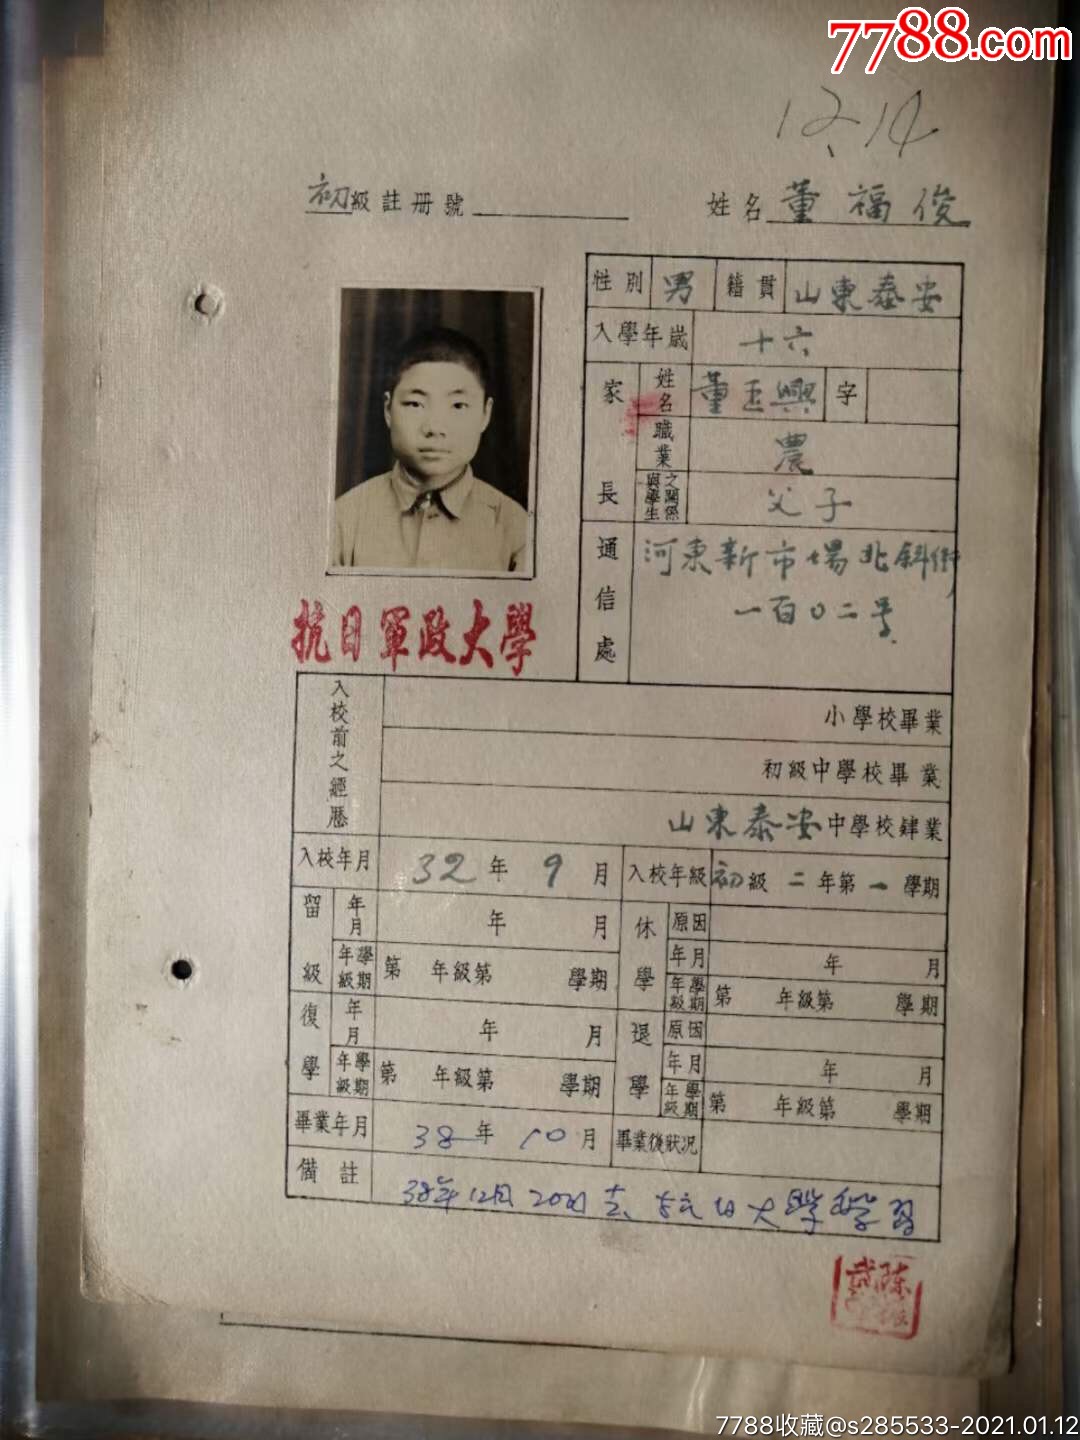 7788.com
12.14
初級註冊號 姓名 董福俊
性別 男 籍貫 山東泰安
入學年歲 十六
家長 姓名 董玉興 字
職業 農
與學生之關係 父子
通信處 河東新市場北斜街
一百〇二号
抗日軍政大學
入校前之經歷
小學校畢業
初級中學校畢業
山東泰安中學校肄業
入校年月 32年9月 入校年級 初級二年第一學期
留級 年月 年 月 休學 原因
年級學期 第 年級第 學期 年月 年 月
年級學期 第 年級第 學期
復學 年月 年 月 退學 原因
年級學期 第 年級第 學期 年月 年 月
年級學期 第 年級第 學期
畢業年月 38年10月 畢業後狀況
備註 38年12月20日去抗日大學學習
陈
7788收藏@s285533-2021.01.12